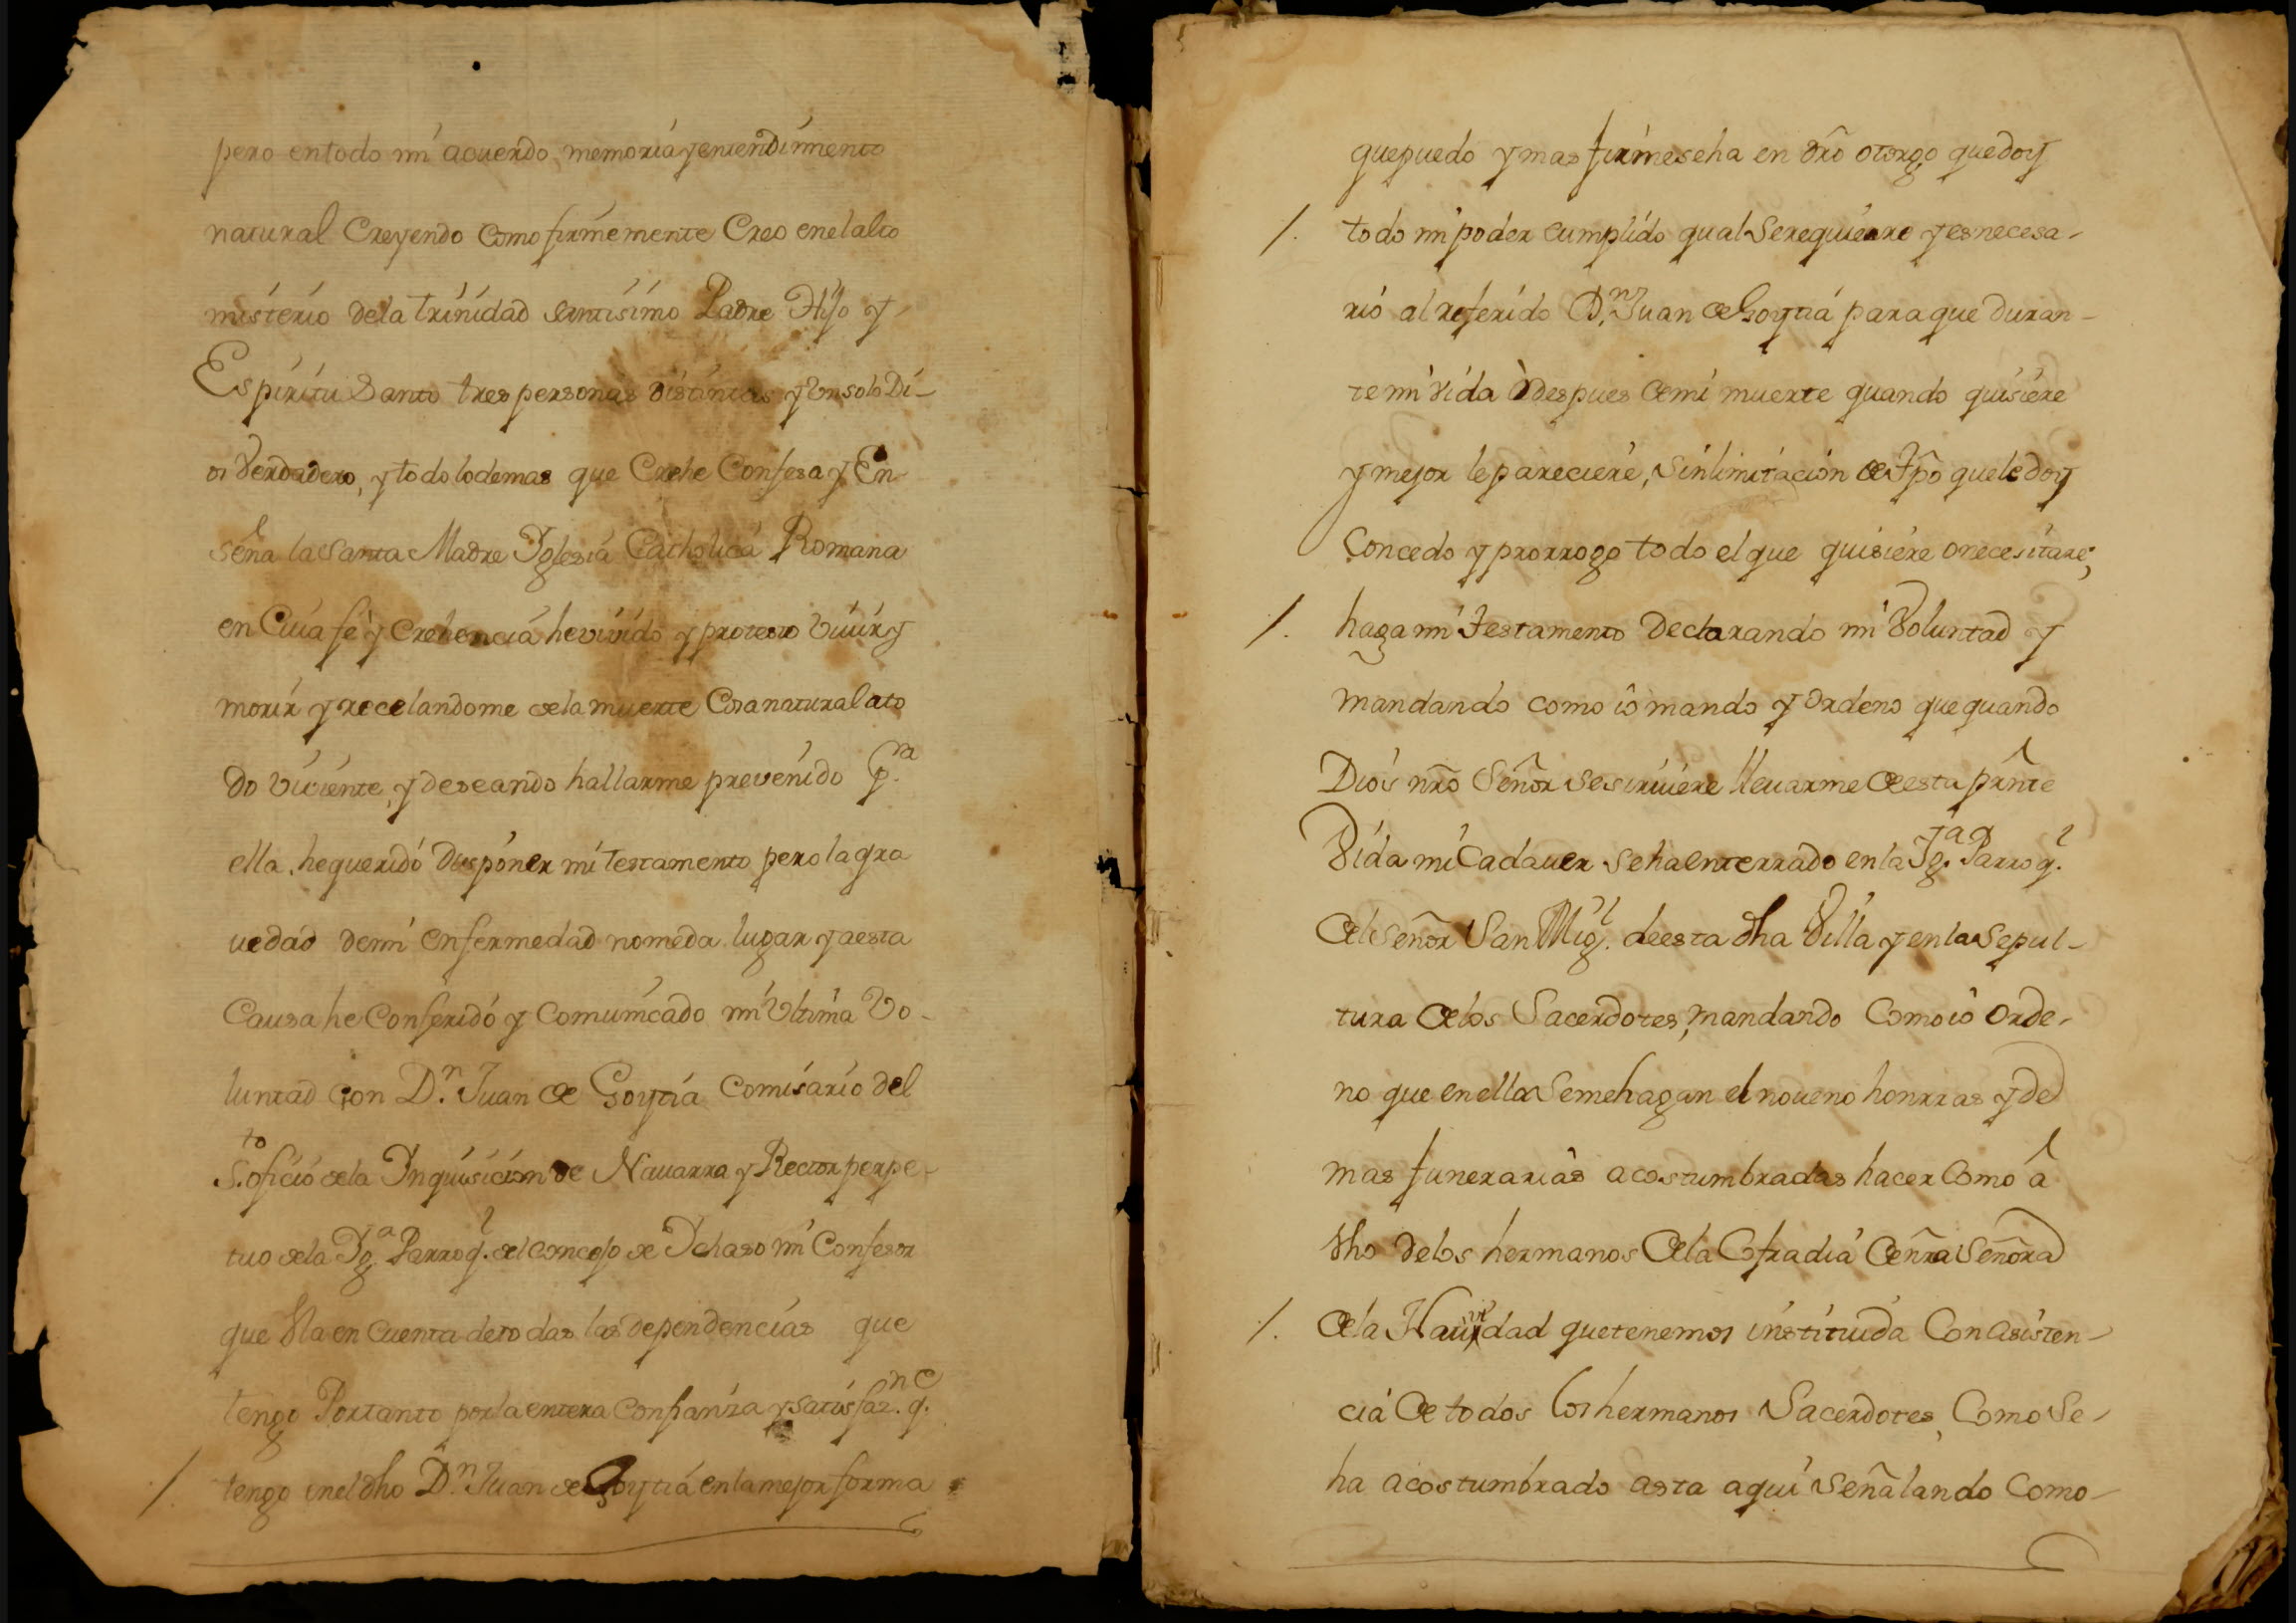 pero en todo mi acuerdo, memoria y entendimiento
natural Creyendo como firmemente Creo en el alto
misterio de la trinidad santisimo Padre Hijo y
Espiritu Santo tres personas distintas y Un solo Di-
os Verdadero, y todo lo demas que Crehe Confesa y En
seña la Santa Madre Iglesia Catholica Romana
en Cuia fe y Crehencia he vivido y protesto Viuir y
morir y recelandome de la muerte Cosa natural a to
do viuiente, y deseando hallarme prevenido p.ra
ella, he querido disponer mi testamento pero la gra
uedad de mi enfermedad no me da lugar y a esta
Causa he Conferido y Comunicado mi Vltima Vo-
luntad con D.n Juan de Goytia Comisario del
S.to oficio de la Inquisicion de Nauarra y Rector perpe-
tuo de la Ig.a Parroq.l del concejo de Ichaso mi Confesor
que Sta en Cuenta de todas las dependencias que
tengo Portanto por la entera Confianza y satisfaz.n q.e
/. tengo en el dho D.n Juan de Goytia en la mejor forma
que puedo y mas firme se ha en dro otorgo que doy
/. todo mi poder cumplido qual se requiere y es necesa-
rio al referido D.n Juan de Goytia para que duran-
te mi vida ò despues de mi muerte quando quisiere
y mejor le pareciere, sin limitacion de tpo que le doy
Concedo y prorrogo todo el que quisiere o necesitare,
/. haga mi testamento Declarando mi Voluntad y
mandando como io mando y ordeno que quando
Dios nro Señor se siruiere lleuarme de esta prnte
Vida mi Cadauer se ha enterrado en la Ig.ia Parroq.l
del Señor San Mig.l de esta dha Villa y en la Sepul-
tura de los Sacerdotes, mandando Como io orde-
no que en ella se me hagan el noueno honrras y de
mas funerarias acostumbradas hacer Como â
dho de los hermanos de la Cofradia de nra Señora
/. de la Nauidad que tenemos instituida Con asisten-
cia de todos los hermanos Sacerdotes, Como Se-
ha acostumbrado asta aqui Señalando Como-